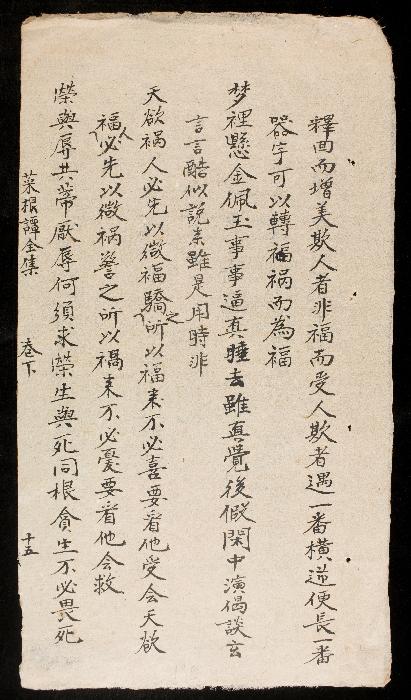 釋回而增美欺人者非福而受人欺者遇一番橫逆便長一番
器宇可以轉福禍而為福
梦裡懸金佩玉事事逼真睡去雖真覺後假閑中演偈談玄
言言酷似説来雖是用時非
天欲禍人必先以微福驕之所以福来不必喜要看他受会天欲
福人必先以微禍警之所以禍来不必憂要看他会救
榮與辱共蒂厭辱何須求榮生與死同根貪生不必畏死
菜根譚全集 卷下 十五